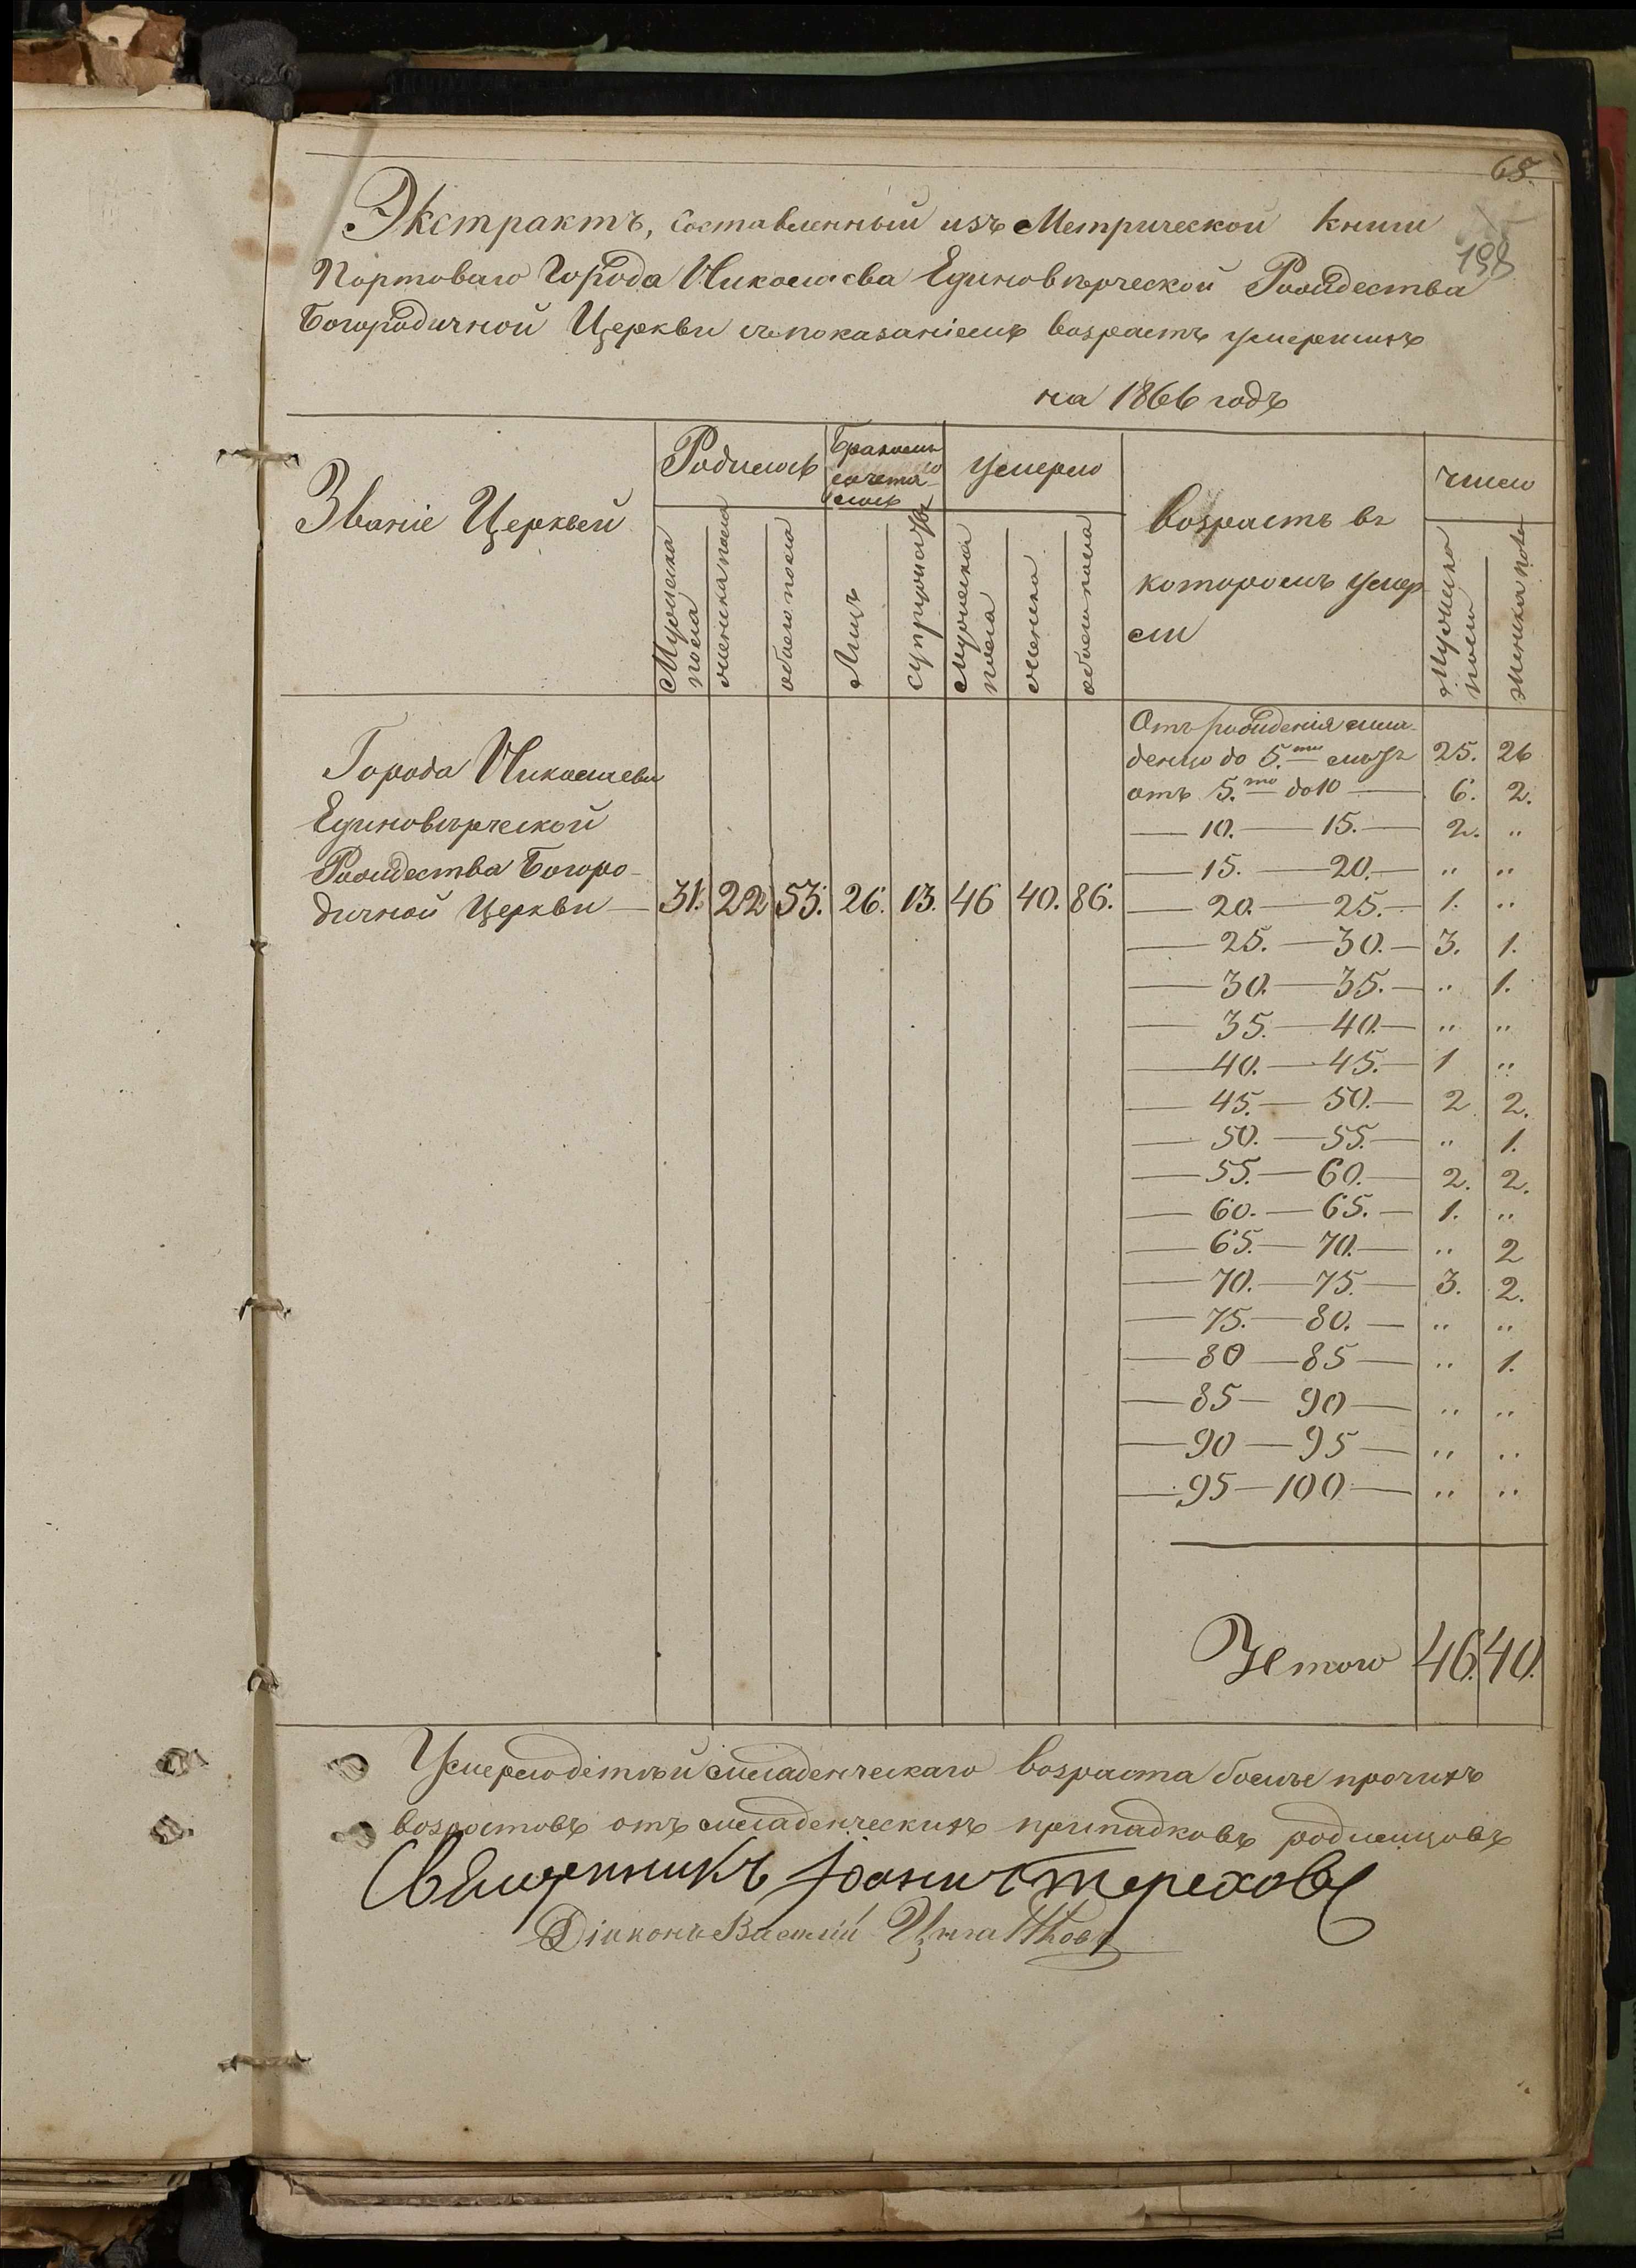 65.
198
Экстрактъ, составленный изъ Метрической книги
Портоваго Города Николаева Единовѣрческой Рождества
Богородичной Церкви съ показаніемъ возрастъ умершихъ
на 1866 годъ
Званіе Церквей
Родилось
Бракомъ
сочета-
лось
умерло
возрастъ въ
которомъ умер
ли
число
Мужеска
пола
женска пола
обоего пола
Лицъ
супружествъ
мужеска
пола
женска
обоего пола
Мужеска
пола
женска пола
Города Николаева
Единовѣрческой
Рождества Богоро-
дичной Церкви — 31. 22 53. 26. 13. 46 40. 86.
Отъ рожденія мла-
денцо до 5.ти лѣтъ 25. 26
отъ 5.ти до 10 — 6. 2.
— 10. — 15. — 2. „
— 15. — 20. — „ „
— 20. — 25. — 1. „
— 25. — 30. — 3. 1.
— 30. — 35. — „ 1.
— 35. — 40. — „ „
— 40. — 45. — 1 „
— 45. — 50. — 2 2.
— 50. — 55. — „ 1.
— 55. — 60. — 2. 2.
— 60. — 65. — 1. „
— 65. — 70. — „ 2
— 70. — 75. — 3. 2.
— 75. — 80. — „ „
— 80 — 85 — „ 1.
— 85 — 90 — „ „
— 90 — 95 — „ „
— 95 — 100 — „ „
Итого 46. 40.
Умерло дѣтей младенческаго возраста болѣе прочихъ
возрастовъ отъ младенческихъ припадковъ родимцовъ
Священникъ Іоаннъ Тереховъ
Діаконъ Василій